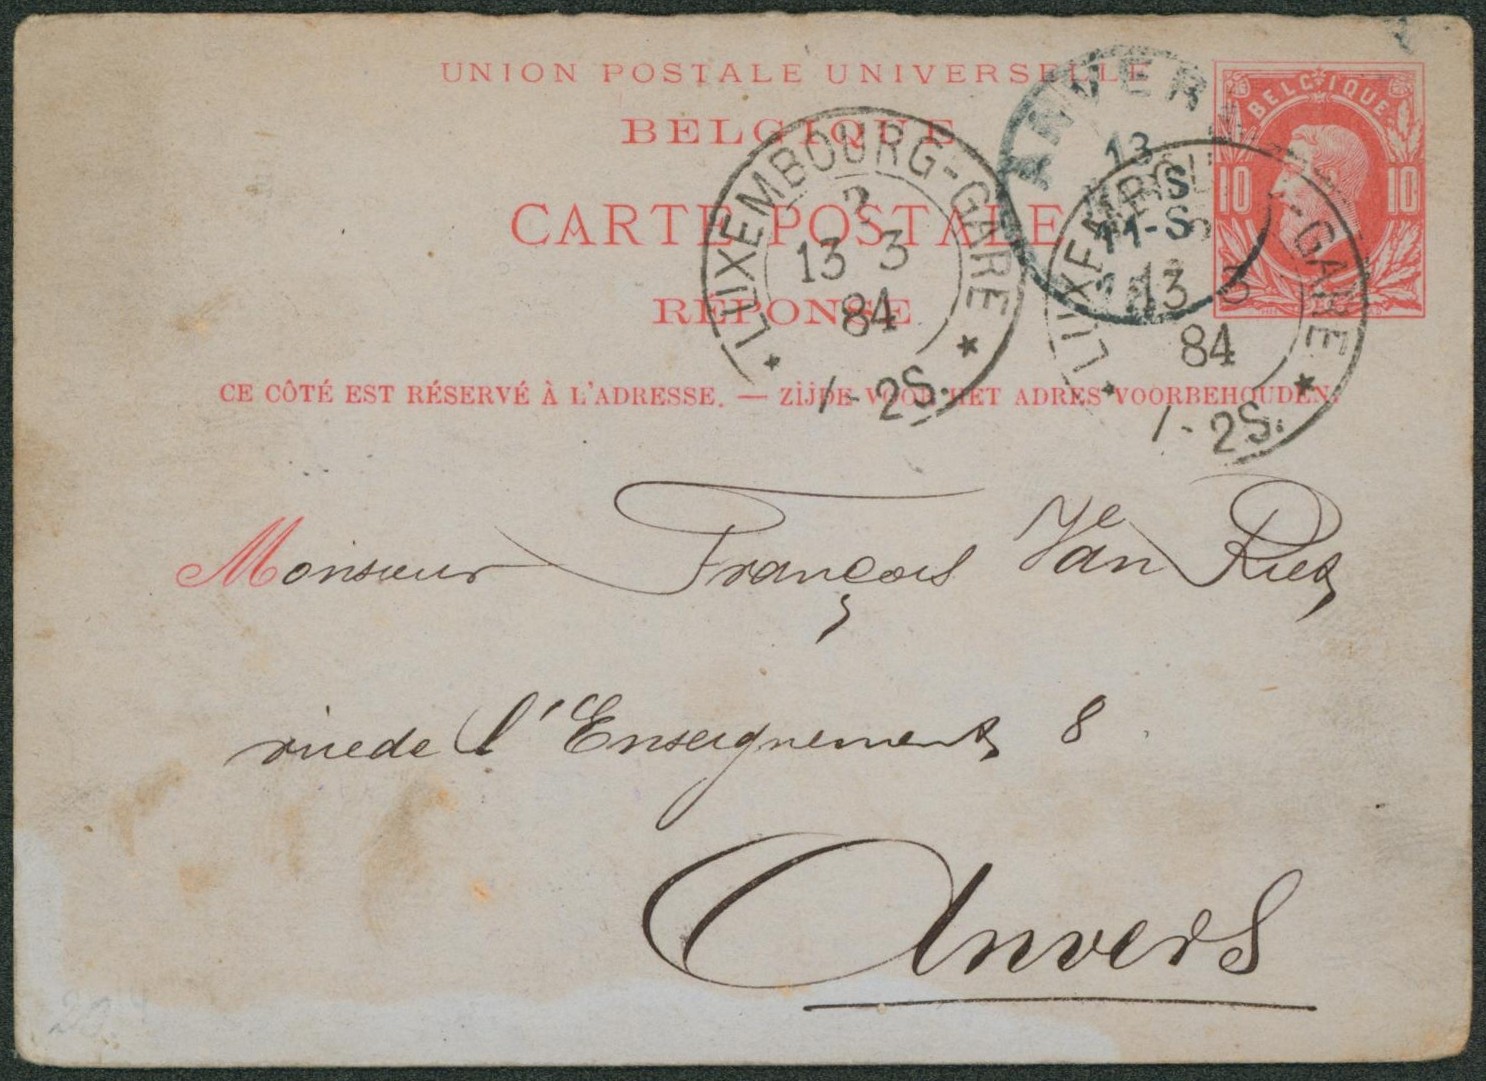 UNION POSTALE UNIVERSELLE
BELGIQUE
CARTE POSTALE
RÉPONSE
CE CÔTÉ EST RÉSERVÉ À L'ADRESSE. — ZIJDE VOOR HET ADRES VOORBEHOUDEN.
BELGIQUE
10 10
ANVERS
13
S
11-S
LUXEMBOURG-GARE
2
13 3
84
1-2S.
LUXEMBOURG-GARE
13 3
84
1-2S.
Monsieur François Van Riet
rue de l'Enseignement 8
Anvers